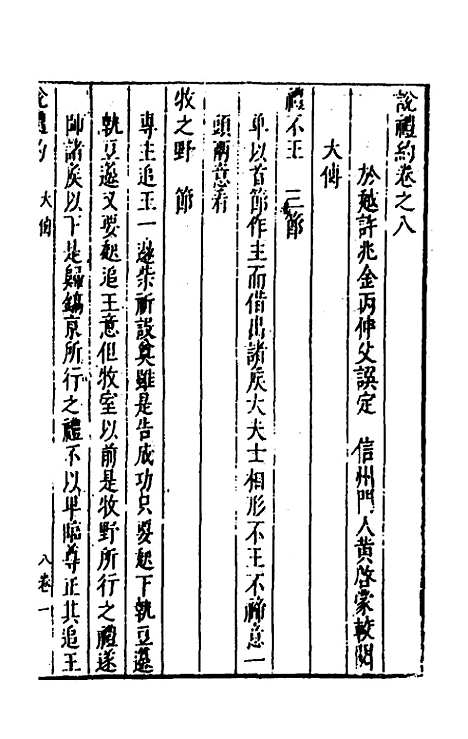 說禮約卷之八
於越許兆金丙仲父譔定　信州門人黃啓蒙較閱
大傳
禮不王　三節
單以首節作主而借出諸矦大夫士相形不王不禘意一
頭兩意看
牧之野　節
專主追王一邊柴祈設奠雖是告成功只要起下執豆籩
執豆籩又要起追王意但牧室以前是牧野所行之禮遂
帥諸矦以下是歸鎬京所行之禮不以卑臨尊正其追王
說禮約　大傳　八卷一